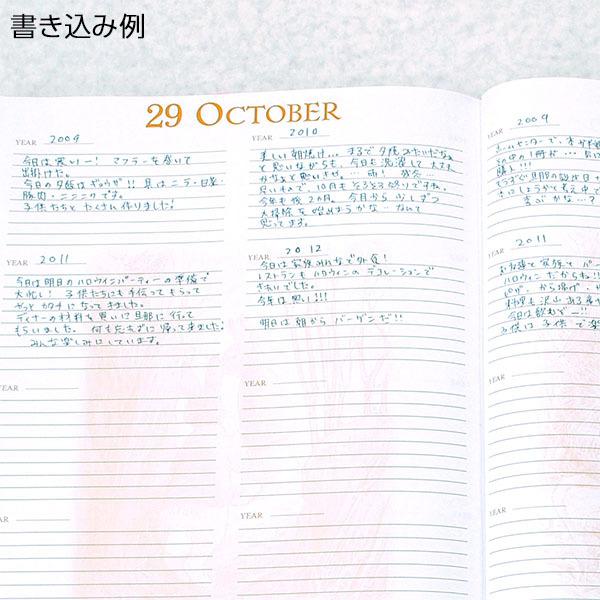 書き込み例
29 OCTOBER
YEAR 2009
今日は寒いー! マフラーを巻いて
出掛けた。
今日の夕飯はギョウザ!! 具はニラ・白菜・
豚肉・ニンニクです。
子供たちと たくさん作りました!
YEAR 2010
美しい朝焼け… まるで夕焼みたいだなぁ
と思いながらも、今日も洗濯して大丈夫
かなぁと思いきや。… 雨!
早いもので、10月もそろそろ終りですね。
今年も後2ヵ月。今日から少しずつ
大掃除を始めようかな… なんて
思ってます。
YEAR 2011
今日は明日のハロウィンパーティーの準備で
大忙し! 子供たちにも手伝ってもらって
やっとカタチになってきました。
ディナーの材料を買いに旦那に行って
もらいました。何も忘れずに帰って来ました!
みんな楽しみにしています。
YEAR 2012
今日は家族みんなで外食!
レストランもハロウィンのデコレーションで
きれいでした。
今年は早い!!!
明日は朝からバーゲンだ!!
YEAR
YEAR
YEAR
YEAR
YEAR 2009
ホームセンターで
その中の1冊が…
購入!!!
もうすぐ旦那の誕生日
にしようかと考え中
喜ぶかな?
YEAR 2011
お友達と家族で
ハロウィンだからね!!
ピザ、から揚げ、
料理も沢山ある
今日は飲むぞー!!
子供は子供で楽
YEAR
YEAR